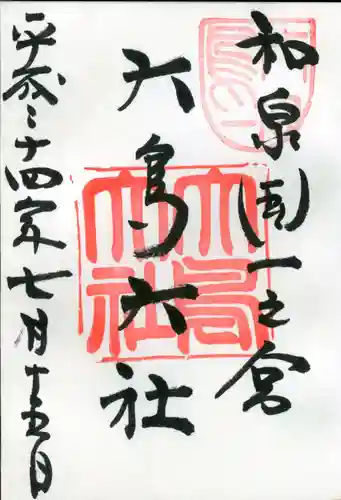 和泉国一之宮
大鳥大社
平成二十四年七月十五日
大鳥大社